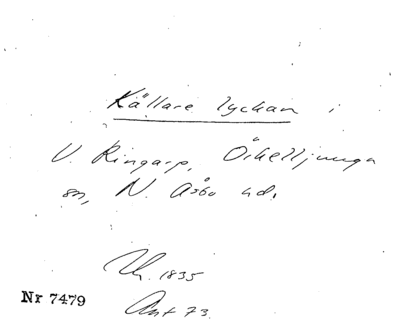 Källare lyckan i
V. Ringarp, Örkelljunga
sn, N. Åsbo hd.
1835
Nr 7479
Ant 73.